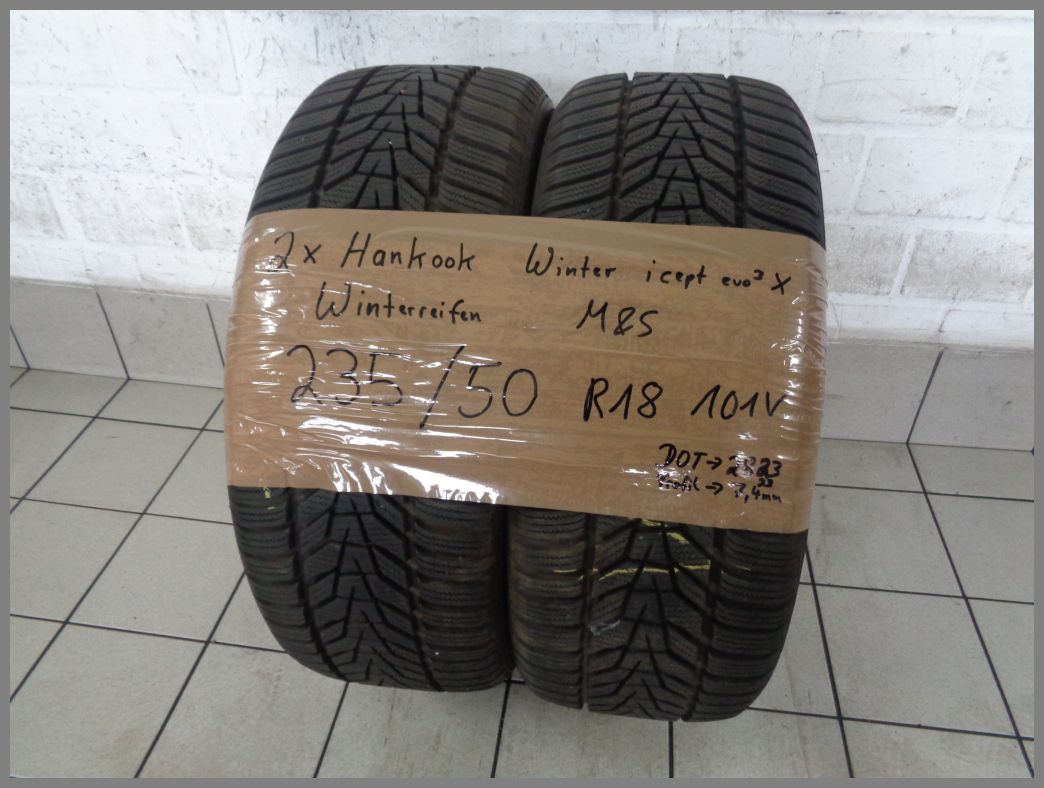 2x Hankook Winter icept evo³ X
Winterreifen M&S
235/50 R18 101V
DOT→
Profil → 7,4mm